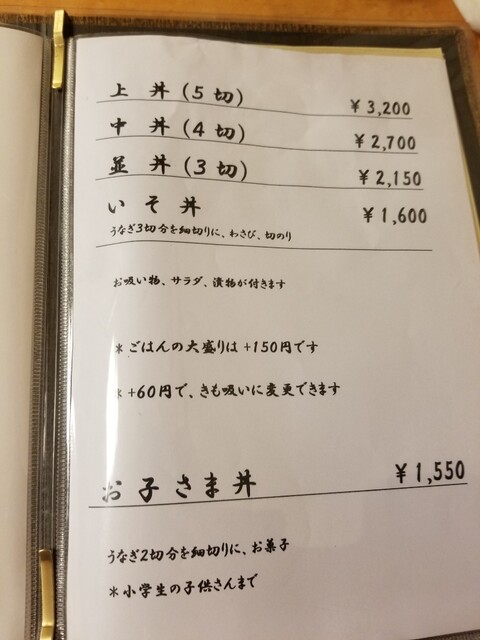 上 丼 (5 切) ¥3,200
中 丼 (4 切) ¥2,700
並 丼 (3 切) ¥2,150
いそ丼 ¥1,600
うなぎ3切分を細切りに、わさび、切のり
お吸い物、サラダ、漬物が付きます
＊ごはんの大盛りは +150円です
＊+60円で、きも吸いに変更できます
お子さま丼 ¥1,550
うなぎ2切分を細切りに、お菓子
＊小学生の子供さんまで